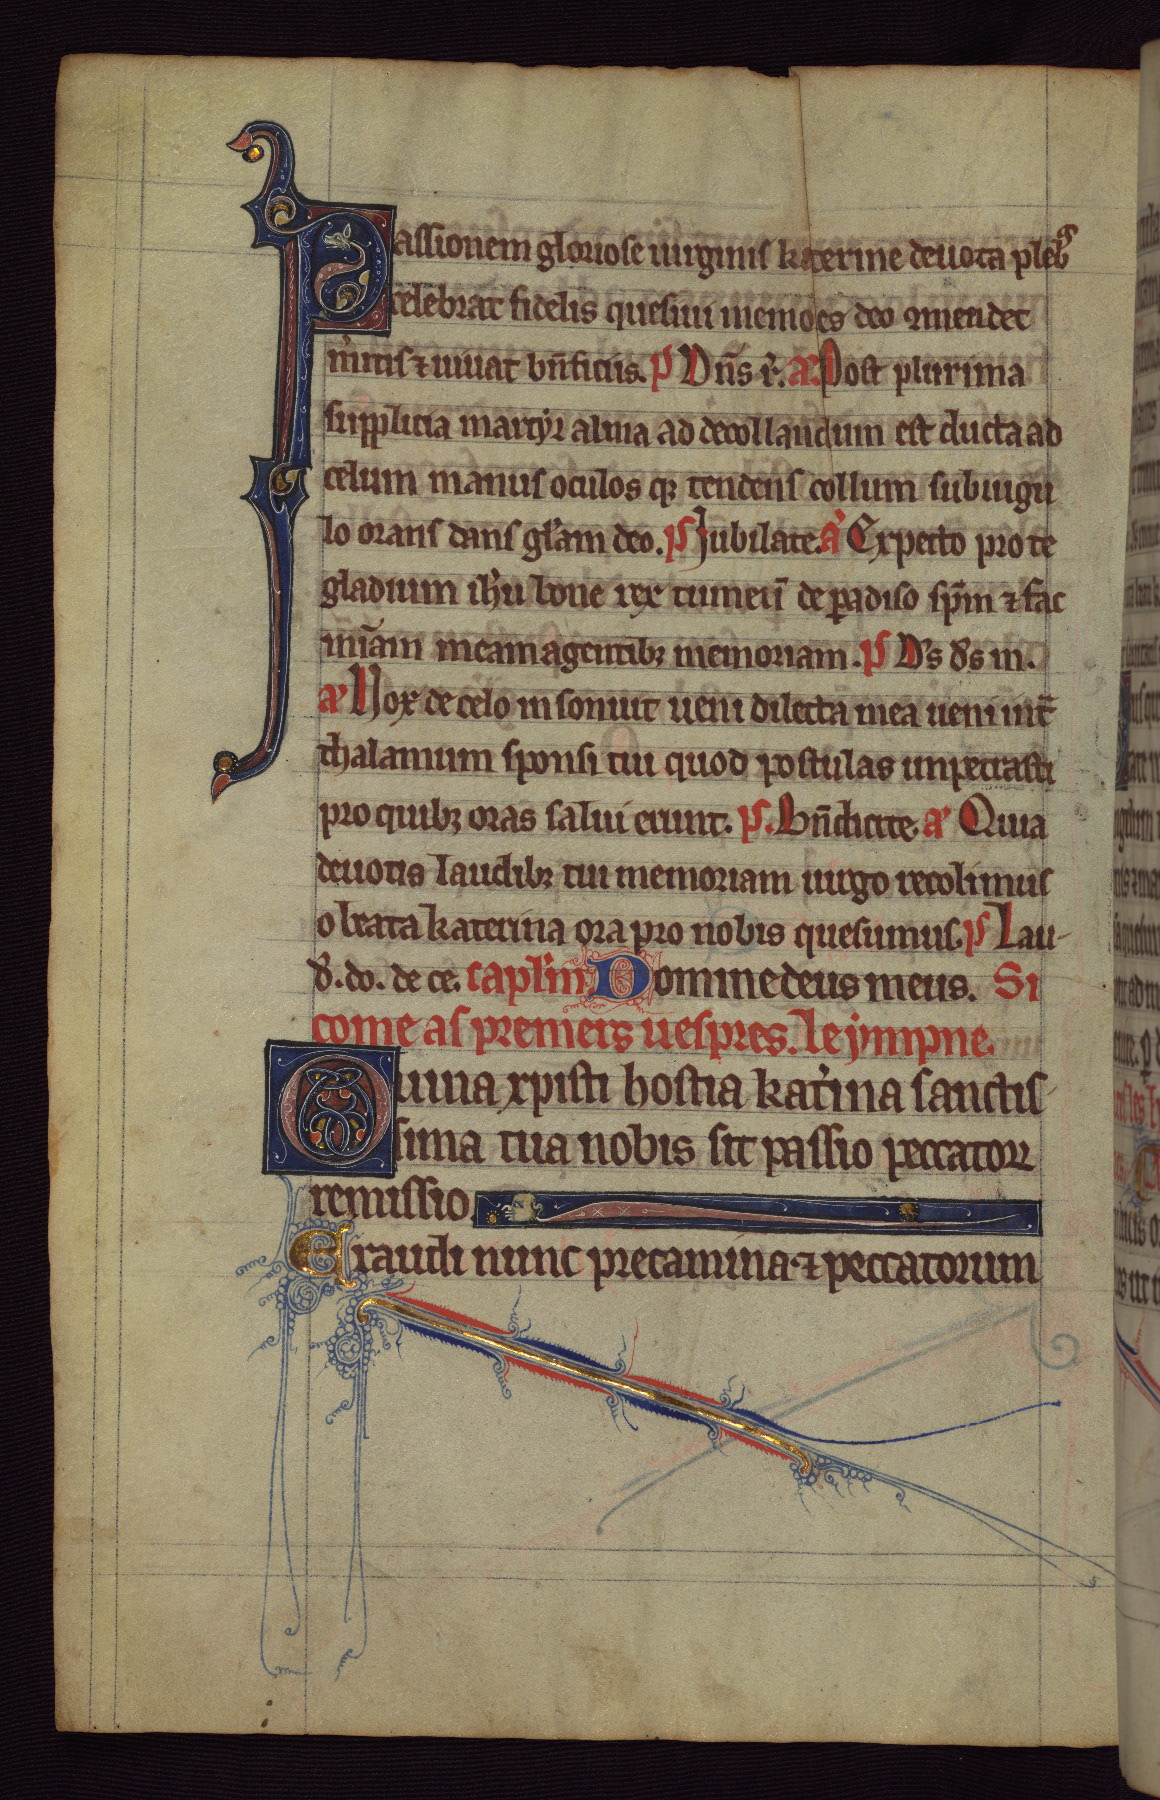 Passionem gloriose uirginis katerine deuota plebs
celebrat fidelis quesiui memores deo 9mendet
m̾itis ⁊ uiuat bn̄ficiis. p̾ Dn̄s r̾. a͛ Post plurima
supplicia martyr alma ad decollandum est ducta ad
celum manus oculos qꝫ tendens collum subiugu
lo orans dans gl̾am deo. p̾ Jubilate. a̾ Expecto pro te
gladium ih̾u bone rex tu meū de ꝑadiso sp̄m ⁊ fac
mīam meam agentibꝫ memoriam. p̾ D̾s d̾s m.
a͛ Vox de celo insonuit ueni dilecta mea ueni int̄
thalamum sponsi tui quod postulas impetrasti
pro quibꝫ oras salui erunt. p̾. Bn̄dicite. a͛ Quia
deuotis laudibꝫ tui memoriam uirgo recolimus
o beata katerina ora pro nobis quesumus. p̾ Lau-
d̾. do. de ce. capl̾m Domine deus meus. Si
come as premiers uespres. le ympne.
O uiua xpisti hostia kat̾ina sanctis
sima tua nobis sit passio peccatoꝝ
remissio
Exaudi nunc precamina ⁊ peccatorum